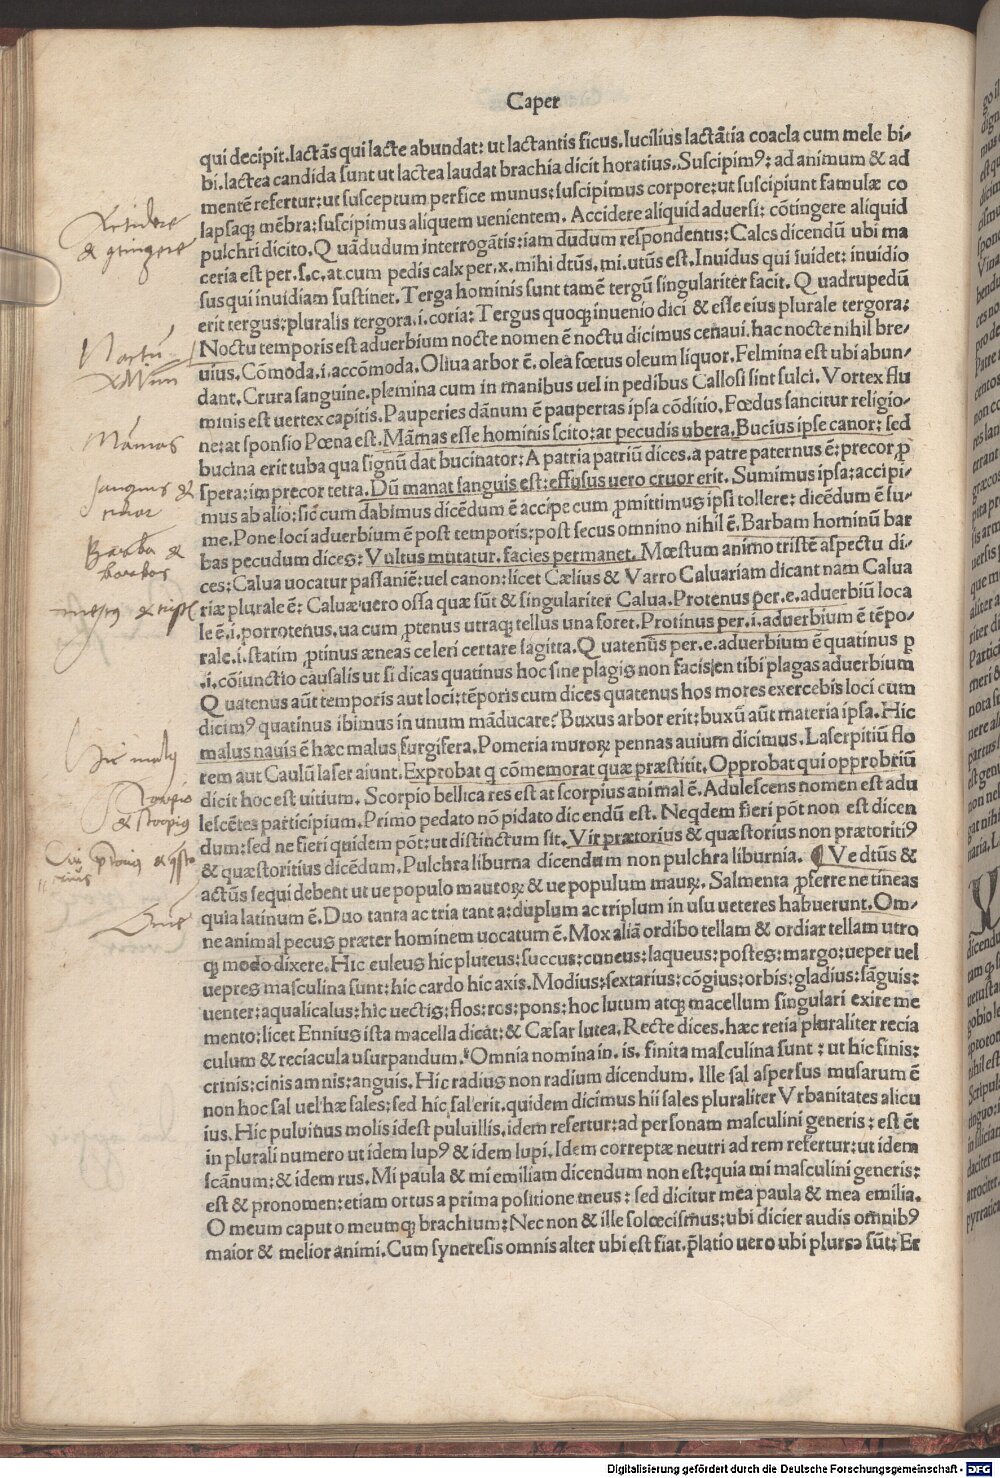 Caper
qui decipit.lactās qui lacte abundat: ut lactantis ficus.lucilius lactātia coacla cum mele bi-
bi.lactea candida sunt ut lactea laudat brachia dicit horatius.Suscipimꝰ: ad animum & ad
mentē refertur:ut susceptum perfice munus:suscipimus corpore:ut suscipiunt famulæ co
lapsaqꝫ mēbra:suscipimus aliquem uenientem. Accidere aliquid aduersi: cōtingere aliquid
pulchri dicito.Quādudum interrogātis:iam dudum respondentis: Calcs dicendū ubi ma
ceria est per.s.c,at cum pedis calx per.x.mihi dtūs.mi.utūs est.Inuidus qui iuidet: inuidio
sus qui inuidiam sustinet.Terga hominis sunt tamē tergū singulariter facit.Quadrupedū
erit tergus:pluralis tergora.i.coria: Tergus quoqꝫ inuenio dici & esse eius plurale tergora:
Noctu temporis est aduerbium nocte nomen ē noctu dicimus cenaui.hac nocte nihil bre-
uius.Cōmoda.i.accōmoda.Oliua arbor ē.olea fœtus oleum liquor.Felmina est ubi abun-
dant.Crura sanguine.plemina cum in manibus uel in pedibus Callosi sint sulci.Vortex flu
minis est uertex capitis.Pauperies dānum ē paupertas ipsa cōditio.Fœdus sancitur religio-
ne:at sponsio Pœna est.Māmas esse hominis scito:at pecudis ubera.Bucius ipse canor: sed
bucina erit tuba qua signū dat bucinator:A patria patriū dices.a patre paternus ē:precor ꝓ
spera:im precor tetra.Dū manat sanguis est:effusus uero cruor erit.Sumimus ipsa:accipi-
mus ab alio:sic̄ cum dabimus dicēdum ē accipe cum ꝓmittimus ipsi tollere: dicēdum ē su-
me.Pone loci aduerbium ē post temporis:post secus omnino nihil ē.Barbam hominū bar
bas pecudum dices:Vultus mutatur.facies permanet.Mœstum animo tristē aspectu di-
ces:Calua uocatur passaniē:uel canon:licet Cælius & Varro Caluariam dicant nam Calua
riæ plurale ē: Caluæ uero ossa quæ sūt & singulariter Calua.Protenus per.e.aduerbiū loca
le ē.i.porrotenus.ua cum ꝓtenus utraqꝫ tellus una foret.Protinus per.i.aduerbium ē tēpo-
rale.i.statim ꝓtinus æneas celeri certare sagitta.Quatenūs per.e.aduerbium ē quatinus ꝑ
.i.cōiunctio causalis ut si dicas quatinus hoc sine plagis non facis|en tibi plagas aduerbium
Quatenus aūt temporis aut loci:tēporis cum dices quatenus hos mores exercebis loci cum
dicimꝰ quatinus ibimus in unum māducare? Buxus arbor erit:buxū aūt materia ipsa.Hic
malus nauis ē hæc malus surgifera.Pomeria muroꝝ pennas auium dicimus.Laserpitiū flo
rem aut Caulū laser aiunt.Exprobat q cōmemorat quæ præstitit.Opprobat qui opprobriū
dicit hoc est uitium. Scorpio bellica res est at scorpius animal ē.Adulescens nomen est adu
lescētes participium.Primo pedato nō pidato dicendū est. Neqdem fieri pōt non est dicen
dum:sed ne fieri quidem pōt:ut distinctum sit.Vir prætorius & quæstorius non prætoritiꝰ
& quæstoritius dicēdum.Pulchra liburna dicendum non pulchra liburnia. ¶Ve dtūs &
actūs sequi debent ut ue populo mautoꝝ & ue populum mauꝝ. Salmenta ꝓferre ne tineas
quia latinum ē.Duo tanta ac tria tanta:duplum ac triplum in usu ueteres habuerunt.Om-
ne animal pecus præter hominem uocatum ē.Mox aliā ordibo tellam & ordiar tellam utro
qꝫ modo dixere.Hic culeus hic pluteus:succus:cuneus:laqueus:postes:margo:ueper uel
uepres masculina sunt:hic cardo hic axis.Modius:sextarius:cōgius:orbis:gladius:sāguis:
uenter:aqualiculus:hic uectis:flos:ros:pons:hoc lutum atqꝫ macellum singulari exire me
mento:licet Ennius ista macella dicāt:& Cæsar lutea.Recte dices.hæc retia pluraliter recia
culum & reciacula usurpandum. Omnia nomina in.is.finita masculina sunt: ut hic finis:
crinis:cinis amnis:anguis.Hic radius non radium dicendum. Ille sal aspersus musarum ē
non hoc sal uel hæ sales:sed hic sal erit.quidem dicimus hii sales pluraliter Vrbanitates alicu
ius.Hic puluinus molis idest puluillis.idem refertur:ad personam masculini generis: est ēt
in plurali numero ut idem lupꝰ & idem lupi.Idem correptæ neutri ad rem refertur:ut idem
scānum:& idem rus.Mi paula & mi emiliam dicendum non est:quia mi masculini generis:
est & pronomen:etiam ortus a prima positione meus: sed dicitur mea paula & mea emilia.
O meum caput o meumqꝫ brachium:Nec non & ille solœcismus:ubi dicier audis omnibꝰ
maior & melior animi.Cum syneresis omnis alter ubi est fiat.p̄latio uero ubi plursa sūt:Et
Māmas
sanguis &
cruor
Barba &
barbas
Digitalisierung gefördert durch die Deutsche Forschungsgemeinschaft - DFG